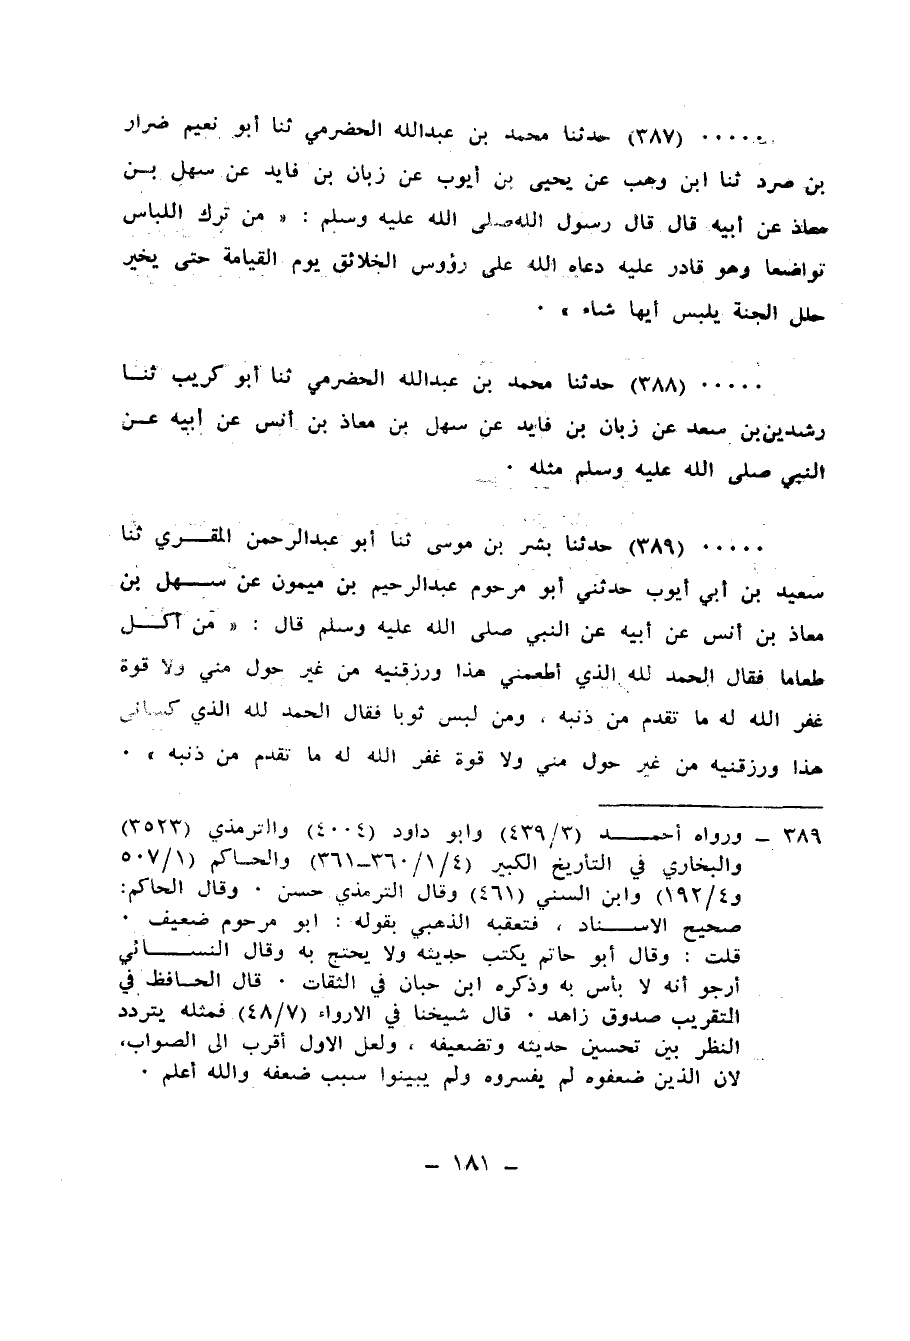 ..... (٣٨٧) حدثنا محمد بن عبدالله الحضرمي ثنا أبو نعيم ضرار
بن صرد ثنا ابن وهب عن يحيى بن أيوب عن زبان بن فايد عن سهل بن
معاذ عن أبيه قال قال رسول الله صلى الله عليه وسلم : « من ترك اللباس
تواضعا وهو قادر عليه دعاه الله على رؤوس الخلائق يوم القيامة حتى يخير
حلل الجنة يلبس أيها شاء » .
..... (٣٨٨) حدثنا محمد بن عبدالله الحضرمي ثنا أبو كريب ثنا
رشدين بن سعد عن زبان بن فايد عن سهل بن معاذ بن أنس عن أبيه عن
النبي صلى الله عليه وسلم مثله .
..... (٣٨٩) حدثنا بشر بن موسى ثنا أبو عبدالرحمن المقري ثنا
سعيد بن أبي أيوب حدثني أبو مرحوم عبدالرحيم بن ميمون عن سهل بن
معاذ بن أنس عن أبيه عن النبي صلى الله عليه وسلم قال : « من أكل
طعاما فقال الحمد لله الذي أطعمني هذا ورزقنيه من غير حول مني ولا قوة
غفر الله له ما تقدم من ذنبه ، ومن لبس ثوبا فقال الحمد لله الذي كساني
هذا ورزقنيه من غير حول مني ولا قوة غفر الله له ما تقدم من ذنبه » .
٣٨٩ ـ ورواه أحمد (٤٣٩/٣) وابو داود (٤٠٠٤) والترمذي (٣٥٢٣)
والبخاري في التأريخ الكبير (٣٦٠/١/٤ـ٣٦١) والحاكم (٥٠٧/١
و١٩٢/٤) وابن السني (٤٦١) وقال الترمذي حسن . وقال الحاكم:
صحيح الاسناد ، فتعقبه الذهبي بقوله : ابو مرحوم ضعيف .
قلت : وقال أبو حاتم يكتب حديثه ولا يحتج به وقال النسائي
أرجو أنه لا بأس به وذكره ابن حبان في الثقات . قال الحافظ في
التقريب صدوق زاهد . قال شيخنا في الارواء (٤٨/٧) فمثله يتردد
النظر بين تحسين حديثه وتضعيفه ، ولعل الاول أقرب الى الصواب،
لان الذين ضعفوه لم يفسروه ولم يبينوا سبب ضعفه والله أعلم .
ـ ١٨١ ـ